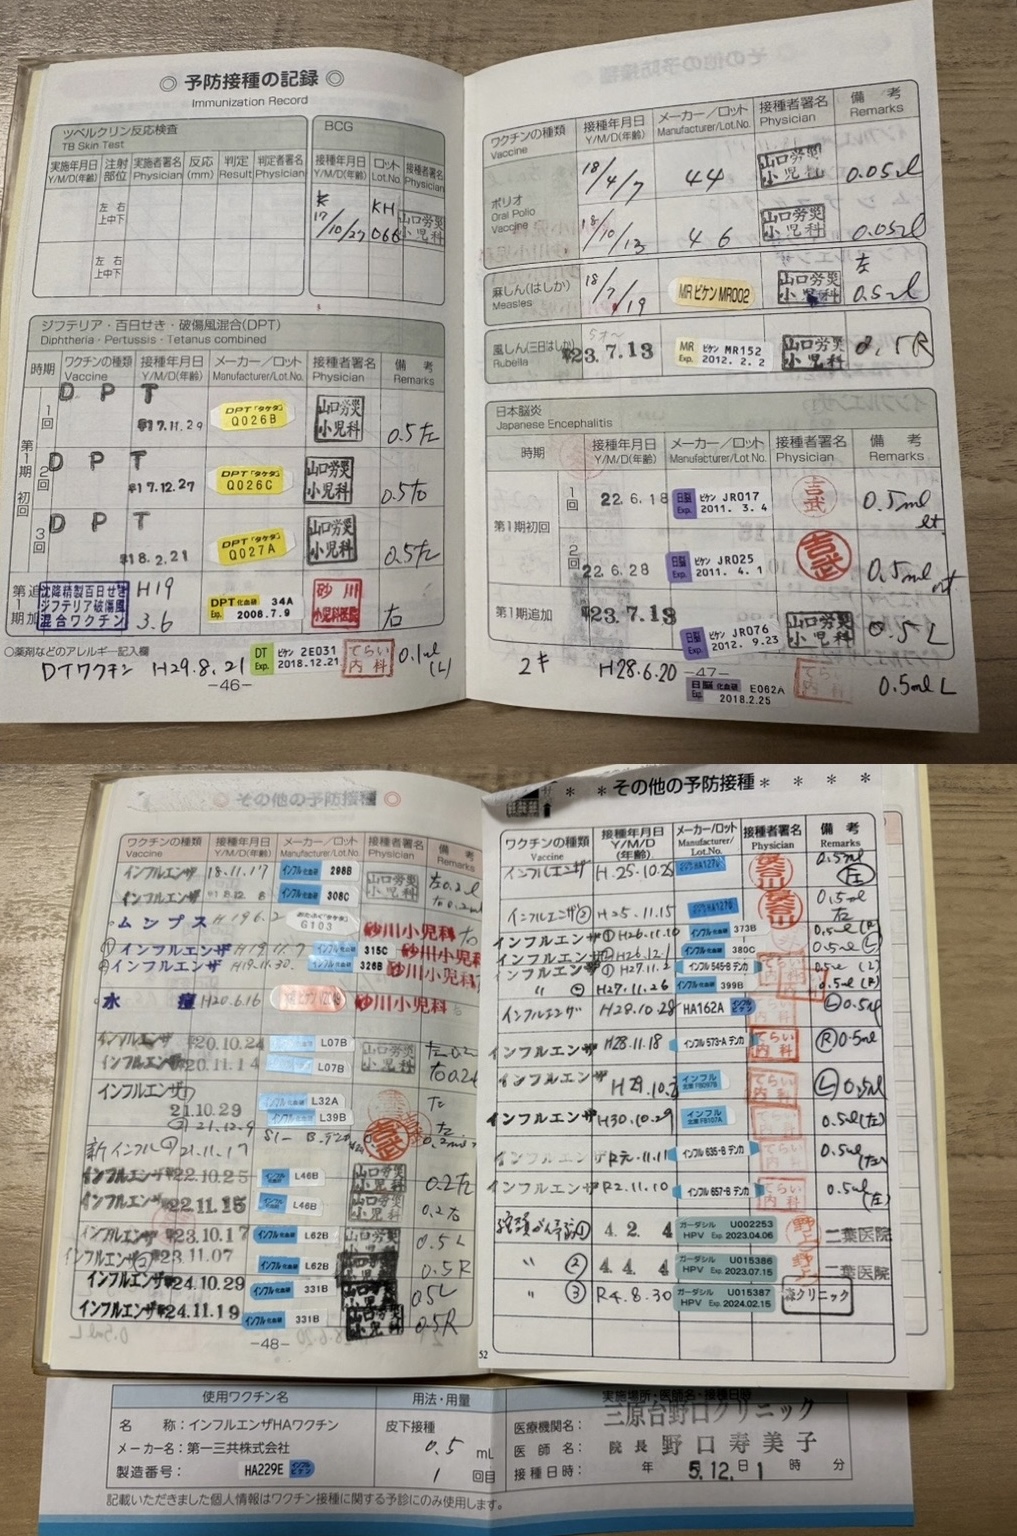 ◎ 予防接種の記録 ◎
Immunization Record
ツベルクリン反応検査
TB Skin Test
実施年月日 Y/M/D(年齢) 注射部位 実施者署名 Physician 反応 (mm) 判定 Result 判定者署名 Physician
左 右 上中下
左 右 上中下
BCG
接種年月日 Y/M/D(年齢) ロット Lot.No. 接種者署名 Physician
17/10/27 KH066 山口労災小児科
ジフテリア・百日せき・破傷風混合(DPT)
Diphtheria・Pertussis・Tetanus combined
時期 ワクチンの種類 Vaccine 接種年月日 Y/M/D(年齢) メーカー/ロット Manufacturer/Lot.No. 接種者署名 Physician 備考 Remarks
第1期初回
1回 DPT 17.11.29 DPT「タケダ」 Q026B 山口労災小児科 0.5左
2回 DPT 17.12.27 DPT「タケダ」 Q026C 山口労災小児科 0.5右
3回 DPT 18.2.21 DPT「タケダ」 Q027A 山口労災小児科 0.5左
第1期追加 沈降精製百日せきジフテリア破傷風混合ワクチン H19 3.6 DPT 化血研 34A Exp. 2008.7.9 砂川小児科医院 右
○薬剤などのアレルギー記入欄
DTワクチン H29.8.21 DT ビケン 2E031 Exp. 2018.12.21 てらい内科 0.1ml (L)
—46—
ワクチンの種類 Vaccine 接種年月日 Y/M/D(年齢) メーカー/ロット Manufacturer/Lot.No. 接種者署名 Physician 備考 Remarks
ポリオ Oral Polio Vaccine
18/4/7 44 山口労災小児科 0.05ml
18/10/13 46 山口労災小児科 0.05ml
麻しん(はしか) Measles 18/7/19 MR ビケン MR002 山口労災小児科 左 0.5ml
風しん(三日はしか) Rubella 23.7.13 MR ビケン MR152 Exp. 2012.2.2 山口労災小児科 0.5R
日本脳炎
Japanese Encephalitis
時期 接種年月日 Y/M/D(年齢) メーカー/ロット Manufacturer/Lot.No. 接種者署名 Physician 備考 Remarks
第1期初回
1回 22.6.18 日脳 ビケン JR017 Exp. 2011.3.4 吉武 0.5ml lt
2回 22.6.28 日脳 ビケン JR025 Exp. 2011.4.1 吉武 0.5ml rt
第1期追加 23.7.13 日脳 ビケン JR076 Exp. 2012.9.23 山口労災小児科 0.5L
2キ H28.6.20 日脳 化血研 E062A Exp. 2018.2.25 てらい内科 0.5ml L
—47—
◎ その他の予防接種 ◎
ワクチンの種類 Vaccine 接種年月日 Y/M/D(年齢) メーカー/ロット Manufacturer/Lot.No. 接種者署名 Physician 備考 Remarks
インフルエンザ 18.11.17 インフル 化血研 298B 山口労災小児科 左0.2
インフルエンザ インフル 化血研 308C 右0.2
ムンプス H19.6.2 おたふく「タケダ」 G103 砂川小児科 右
①インフルエンザ H19.11.7 インフル 化血研 315C 砂川小児科
②インフルエンザ H19.11.30. インフル 化血研 326B 砂川小児科
水痘 H20.6.16 砂川小児科
インフルエンザ 20.10.24 インフル 化血研 L07B 山口労災小児科 左0.2
インフルエンザ 20.11.14 インフル 化血研 L07B 右0.2
インフルエンザ①
21.10.29 インフル 化血研 L32A
21.12.9 インフル 化血研 L39B 吉武 左
新インフル 21.11.17
インフルエンザ 22.10.25 インフル 化血研 L46B 山口労災小児科 0.2左
インフルエンザ 22.11.15 インフル 化血研 L46B 山口労災小児科 0.2右
インフルエンザ 23.10.17 インフル 化血研 L62B 山口労災小児科 0.5L
インフルエンザ② 23.11.07 インフル 化血研 L62B 0.5R
インフルエンザ 24.10.29 インフル 化血研 331B 小児科 0.5L
インフルエンザ 24.11.19 インフル 化血研 331B 小児科 0.5R
—48—
＊ ＊ その他の予防接種 ＊ ＊ ＊ ＊
ワクチンの種類 Vaccine 接種年月日 Y/M/D (年齢) メーカー/ロット Manufacturer/Lot.No. 接種者署名 Physician 備考 Remarks
インフルエンザ H.25.10.25 HA127D 0.5ml 左
インフルエンザ② H25.11.15 0.5ml 左
インフルエンザ① H26.11.10 インフル 化血研 373B 0.5ml(R)
インフルエンザ② H26.12.1 インフル 化血研 380C 0.5ml(L)
インフルエンザ① H27.11.2 インフル 545-B デンカ 0.5ml(L)
〃 ② H27.11.26 インフル 化血研 399B 0.5ml(R)
インフルエンザ H28.10.28 HA162A インフル ビケン Ⓛ0.5ml
インフルエンザ H28.11.18 インフル 573-A デンカ てらい内科 Ⓡ0.5ml
インフルエンザ インフル 北里 FB097B てらい内科 Ⓛ0.5ml
インフルエンザ H30.10.29 インフル 北里 FB107A てらい内科 0.5ml(左)
インフルエンザ R元.11.11 インフル 635-B デンカ てらい内科 0.5ml(左)
インフルエンザ R2.11.10 インフル 657-B デンカ てらい内科 0.5ml(左)
子宮頸がん予防① 4.2.4 ガーダシル U002253 HPV Exp 2023.04.06 野上 二葉医院
〃 ② 4.4.4 ガーダシル U015386 HPV Exp 2023.07.15 野上 二葉医院
〃 ③ R4.8.30 ガーダシル U015387 HPV Exp 2024.02.15 森クリニック
52
使用ワクチン名 用法・用量 実施場所・医師名・接種日時
名　称：インフルエンザHAワクチン 皮下接種 医療機関名：三原台野口クリニック
メーカー名：第一三共株式会社 0.5 mL 医師名：院長 野口寿美子
製造番号：HA229E インフル ビケン 1 回目 接種日時： 年 5.12.日1 時 分
記載いただきました個人情報はワクチン接種に関する予診にのみ使用します。